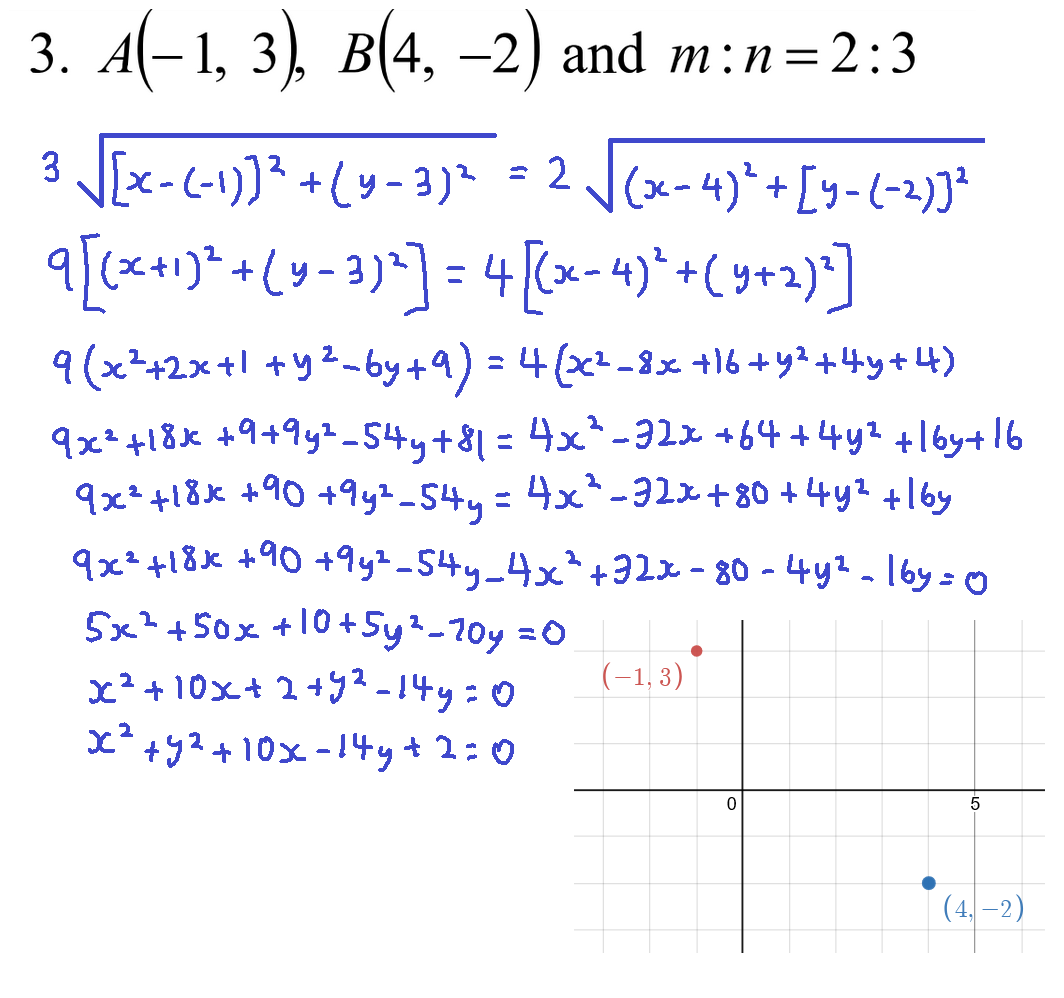 3. A(−1, 3), B(4, −2) and m:n = 2:3
3√([x-(-1)]² + (y-3)²) = 2√((x-4)² + [y-(-2)]²)
9[(x+1)² + (y-3)²] = 4[(x-4)² + (y+2)²]
9(x²+2x+1+y²-6y+9) = 4(x²-8x+16+y²+4y+4)
9x²+18x+9+9y²-54y+81 = 4x²-32x+64+4y²+16y+16
9x²+18x+90+9y²-54y = 4x²-32x+80+4y²+16y
9x²+18x+90+9y²-54y-4x²+32x-80-4y²-16y=0
5x²+50x+10+5y²-70y=0
x²+10x+2+y²-14y=0
x²+y²+10x-14y+2=0
(−1, 3)
0 5
(4, −2)